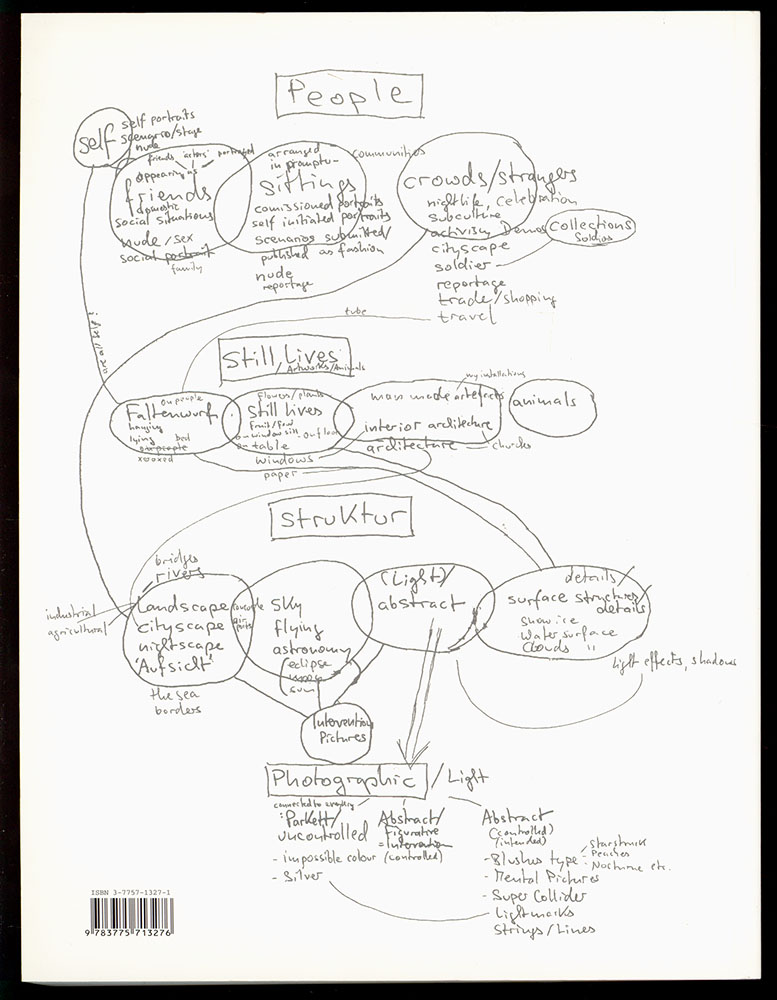 People
self
self portraits
scenario/stage
nude
friends 'actors' portrayed
appearing as
friends
domestic
social situations
nude/sex
social portrait
family
arranged
impromptu-
Sittings
comissioned portraits
self initiated portraits
scenarios submitted/
published as fashion
nude
reportage
communities
crowds/strangers
nightlife, celebration
subculture
activism Demos
cityscape
soldier
reportage
trade/shopping
travel
Collections
Soldiers
tube
Still Lives
/ Artworks/Animals
on people
Faltenwurf
hanging
lying bed
on people
xeroxed
Flowers/plants
Still lives
Fruit/Food
on window sill
on table
- on floor
windows
paper
my installations
mass made artefacts
interior architecture
architecture
church
animals
Struktur
bridges
rivers
industrial
agricultural
Landscape
cityscape
nightscape
'Aufsicht'
the sea
borders
concorde
air
ports
Sky
flying
astronomy
eclipse
venus
sun
(Light)/
abstract
details/
surface structures/
details
snow, ice
Water surface
Clouds "
light effects, shadows
Intervention
Pictures
Photographic / Light
connected to everything
:Parkett/
uncontrolled
- impossible colour
- Silver
Abstract/
Figurative
= Intervention
(controlled)
Abstract
(controlled)
(intended)
- Blushes type:
Starstruck
Peaches
Nocturne etc.
- Mental Pictures
- Super Collider
- Lightmarks
Strings/Lines
ISBN 3-7757-1327-1
9 783775 713276